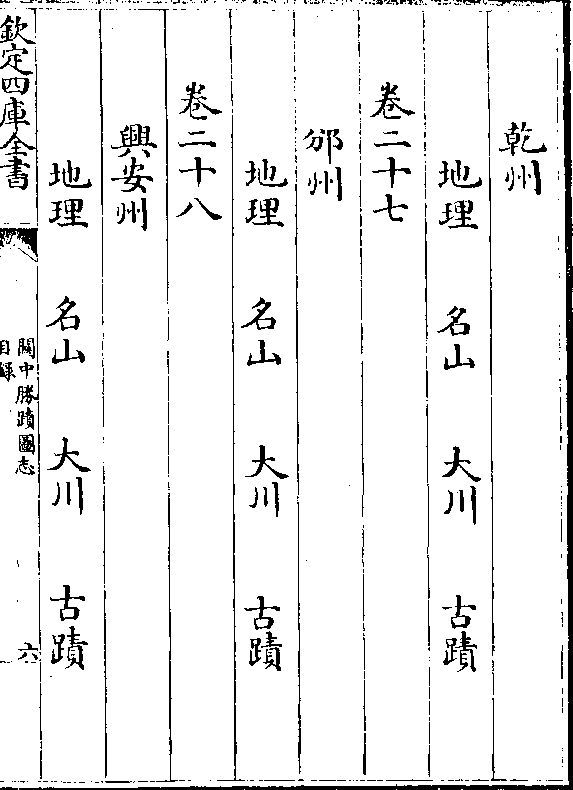 乾州
地理　名山　大川　古蹟
卷二十七
邠州
地理　名山　大川　古蹟
卷二十八
興安州
地理　名山　大川　古蹟
欽定四庫全書
關中勝蹟圖志
目錄
六